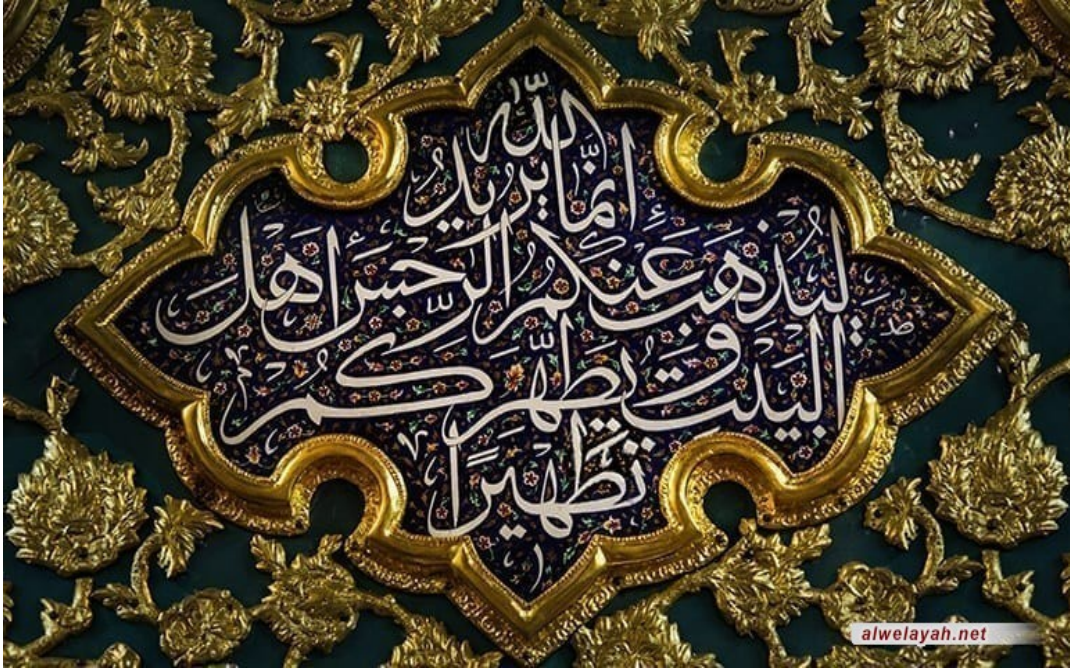 إنَّمَا يُرِيدُ اللّٰه
لِيُذْهِبَ عَنكُمُ الرِّجْسَ أَهْلَ
البَيْتِ وَيُطَهِّرَكُمْ
تَطْهِيرًا
alwelayah.net